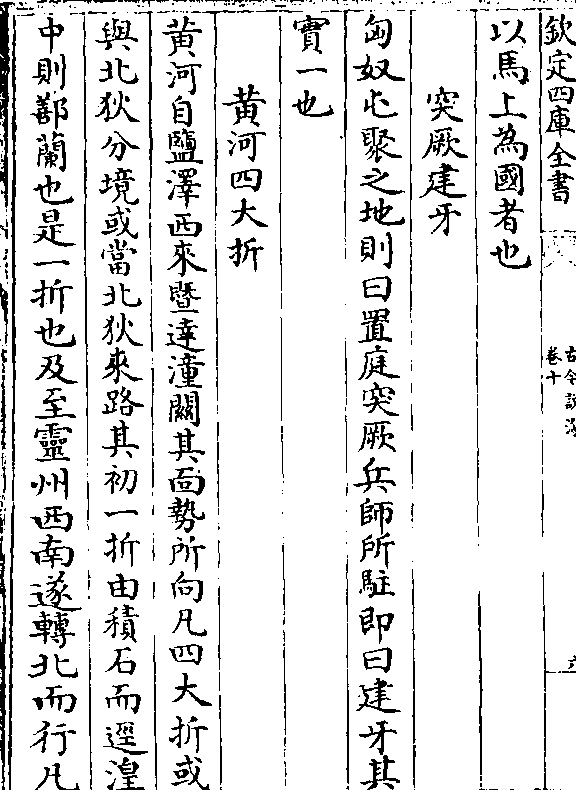 欽定四庫全書
古今說海
卷十
以馬上為國者也
突厥建牙
匈奴屯聚之地則曰置庭突厥兵師所駐即曰建牙其
實一也
黃河四大折
黃河自鹽澤西來暨達潼關其面勢所向凡四大折或
與北狄分境或當北狄來路其初一折由積石而逕湟
中則鄯蘭也是一折也及至靈州西南遂轉北而行凡